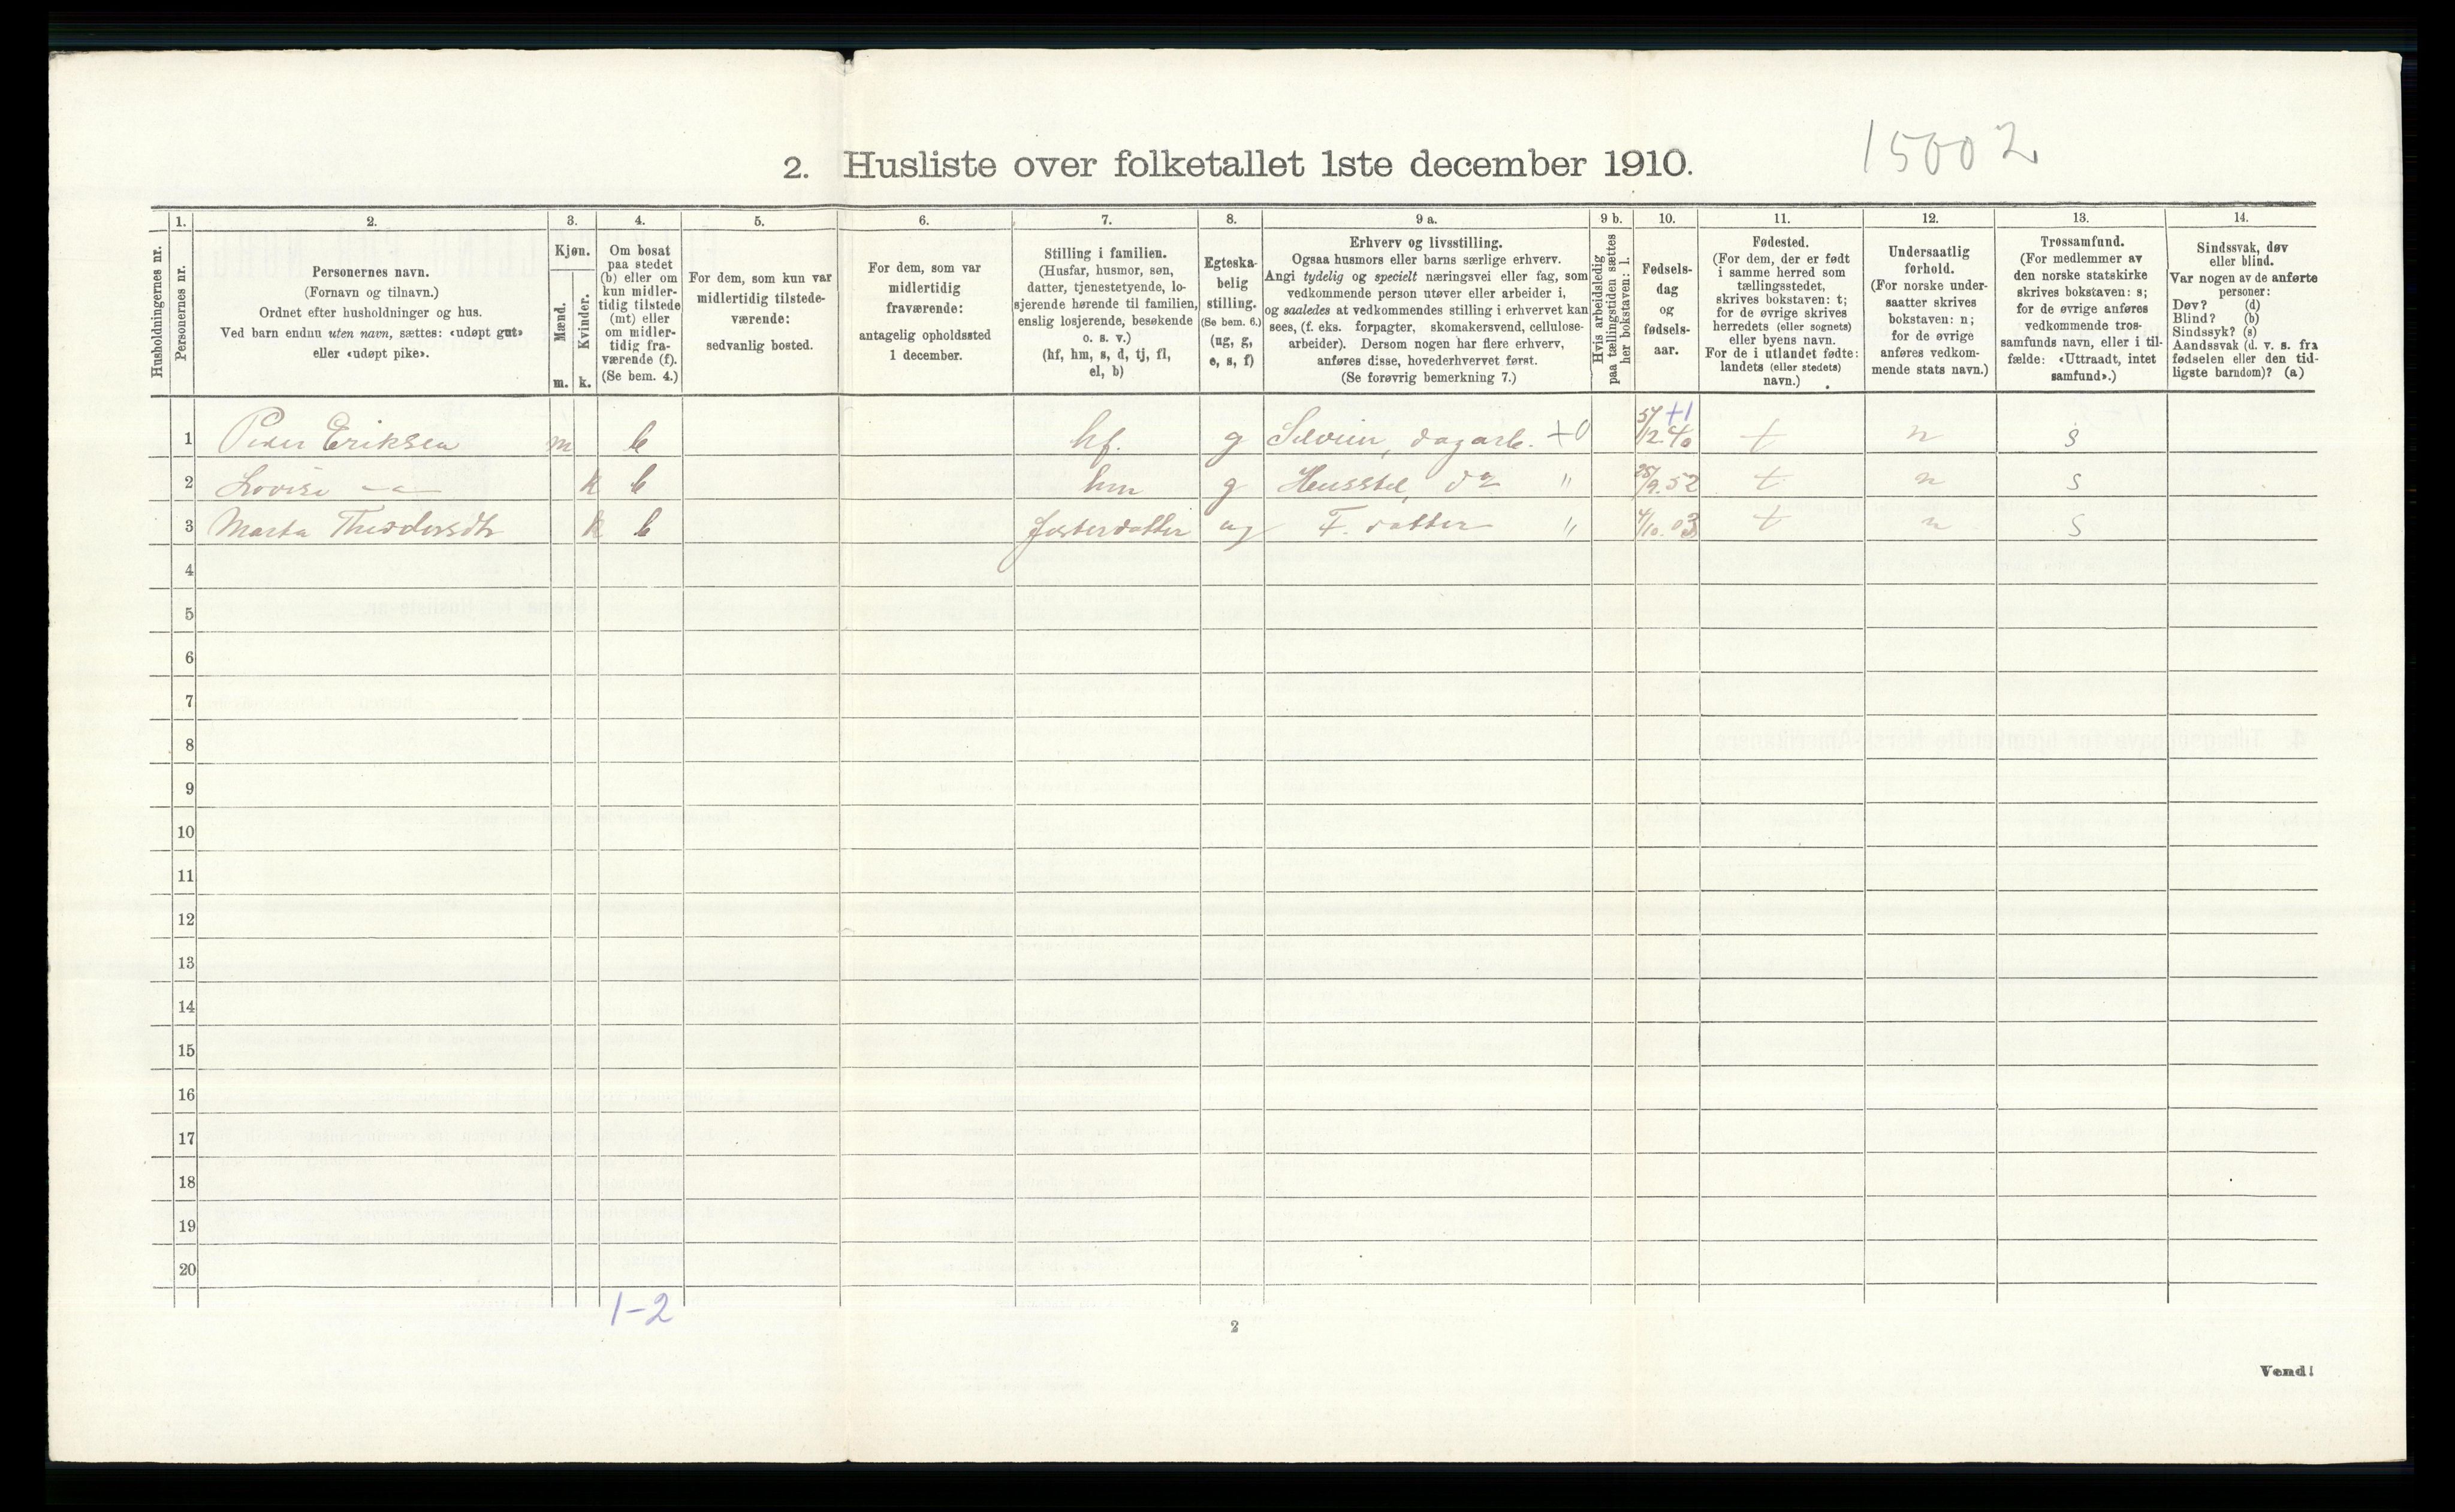 15002
2. Husliste over folketallet 1ste december 1910.
Husholdningernes nr.
1.
Personernes nr.
2.
Personernes navn.
(Fornavn og tilnavn.)
Ordnet efter husholdninger og hus.
Ved barn endnu uten navn, sættes: «udøpt gut»
eller «udøpt pike».
3.
Kjøn.
Mænd.
Kvinder.
m. k.
4.
Om bosat
paa stedet
(b) eller om
kun midler-
tidig tilstede
(mt) eller
om midler-
tidig fra-
værende (f).
(Se bem. 4.)
5.
For dem, som kun var
midlertidig tilstede-
værende:
sedvanlig bosted.
6.
For dem, som var
midlertidig
fraværende:
antagelig opholdssted
1 december.
7.
Stilling i familien.
(Husfar, husmor, søn,
datter, tjenestetyende, lo-
sjerende hørende til familien,
enslig losjerende, besøkende
o. s. v.)
(hf, hm, s, d, tj, fl,
el, b)
8.
Egteska-
belig
stilling.
(Se bem. 6.)
(ug, g,
e, s, f)
9 a.
Erhverv og livsstilling.
Ogsaa husmors eller barns særlige erhverv.
Angi tydelig og specielt næringsvei eller fag, som
vedkommende person utøver eller arbeider i,
og saaledes at vedkommendes stilling i erhvervet kan
sees, (f. eks. forpagter, skomakersvend, cellulose-
arbeider). Dersom nogen har flere erhverv,
anføres disse, hovederhvervet først.
(Se forøvrig bemerkning 7.)
9 b.
Hvis arbeidsledig
paa tællingstiden sættes
her bokstaven: l.
10.
Fødsels-
dag
og
fødsels-
aar.
11.
Fødested.
(For dem, der er født
i samme herred som
tællingsstedet,
skrives bokstaven: t;
for de øvrige skrives
herredets (eller sognets)
eller byens navn.
For de i utlandet fødte:
landets (eller stedets)
navn.)
12.
Undersaatlig
forhold.
(For norske under-
saatter skrives
bokstaven: n;
for de øvrige
anføres vedkom-
mende stats navn.)
13.
Trossamfund.
(For medlemmer av
den norske statskirke
skrives bokstaven: s;
for de øvrige anføres
vedkommende tros-
samfunds navn, eller i til-
fælde: «Uttraadt, intet
samfund».)
14.
Sindssvak, døv
eller blind.
Var nogen av de anførte
personer:
Døv? (d)
Blind? (b)
Sindssyk? (s)
Aandssvak (d. v. s. fra
fødselen eller den tid-
ligste barndom)? (a)
1 Peder Eriksen m b hf. g dagarb. +0 /12.40 +1 t n s
2 Lovise —"— k b hm g Husstel, do " /9.52 t n s
3 Marta Theodorsdtr k b fosterdatter ug F. datter " 4/10.03 t n s
4
5
6
7
8
9
10
11
12
13
14
15
16
17
18
19
20
1-2
2
Vend!